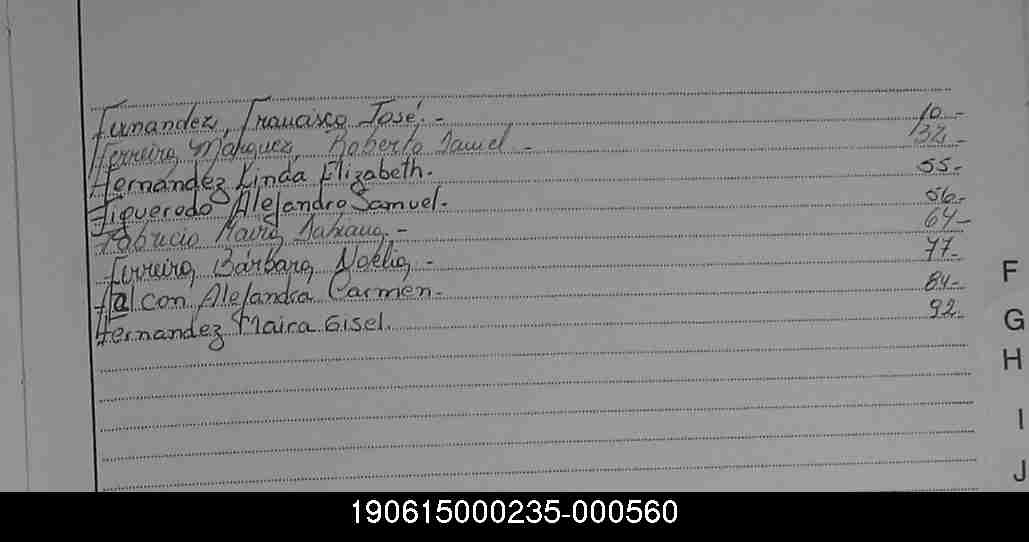 Fernandez, Francisco José.- 10.-
Ferreira Marquez, Roberto Daniel - 32.-
Fernandez Linda Elizabeth. 55.-
Figueredo Alejandro Samuel.- 56.-
Fabricio Mario - 64.-
Ferreira, Bárbara Noelia - 77.-
Falcon Alejandra Carmen.- 84.-
Fernandez Maira Gisel. 92.-
F
G
H
I
J
190615000235-000560